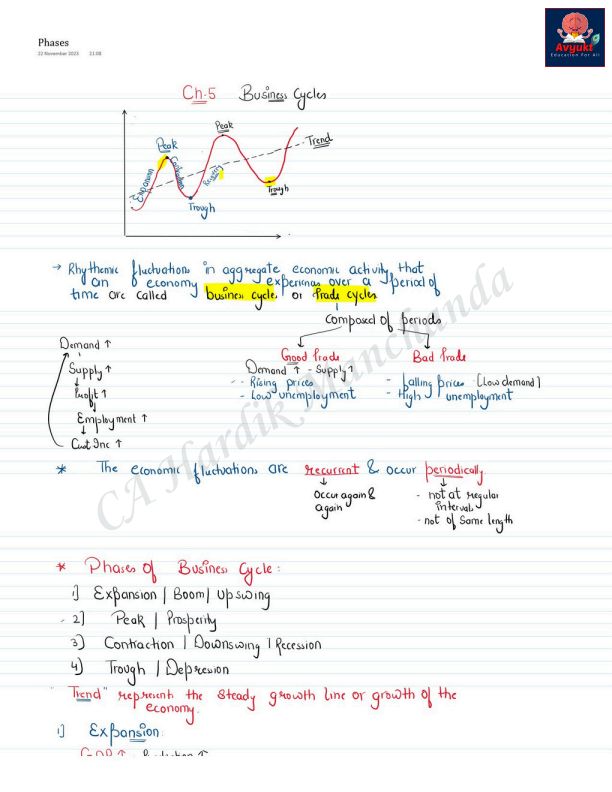 Avyukt
Education For All
Phases
22 November 2023 21:08
Ch.5 Business Cycles
Peak
Peak
Trend
Expansion
Contraction
Recovery
Trough
Trough
→ Rhythmic fluctuations in aggregate economic activity that
an economy experiences over a period of
time are called business cycles or trade cycles
composed of periods
Good Trade
Bad Trade
Demand ↑ - Supply ↑
- Rising prices
- Low unemployment
- falling prices (Low demand)
- High unemployment
Demand ↑
Supply ↑
Profit ↑
Employment ↑
Cust Inc ↑
* The economic fluctuations are recurrent & occur periodically
Occur again &
again
- not at regular
interval
- not of same length
CA Hardik Manchanda
* Phases of Business Cycle:
1] Expansion | Boom | Upswing
2] Peak | Prosperity
3) Contraction | Downswing | Recession
4) Trough | Depression
"Trend" represent the steady growth line or growth of the
economy.
1] Expansion
GDP ↑ Production ↑